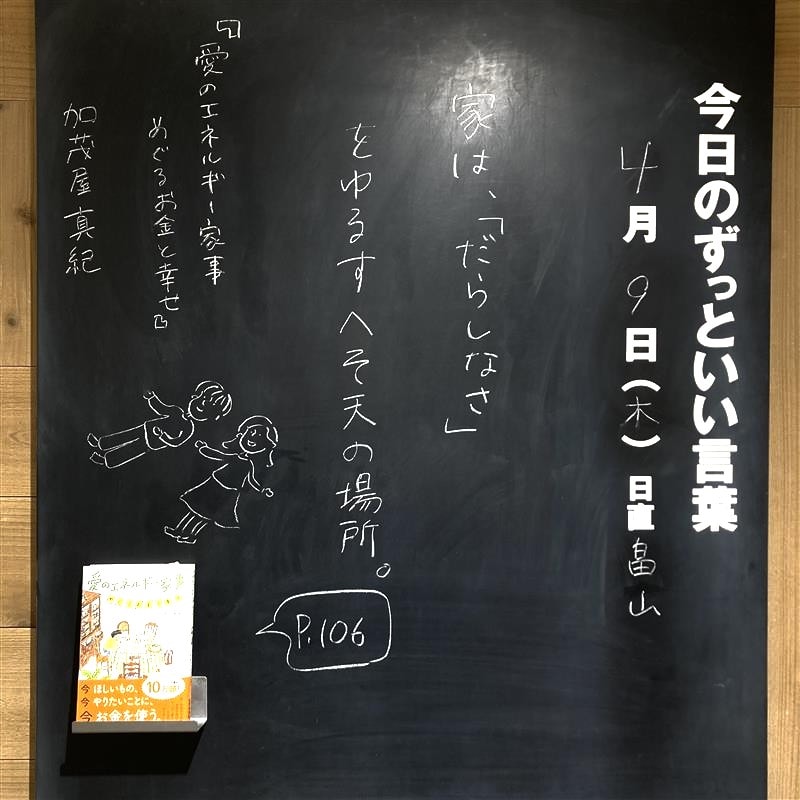 今日のずっといい言葉
4月9日(木) 日直 畠山
家は、「だらしなさ」
をゆるすへそ天の場所。
P.106
『愛のエネルギー家事
めぐるお金と幸せ』
加茂屋真紀
愛のエネルギー家事
今 ほしいもの、
今 やりたいことに、
今 お金を使う。